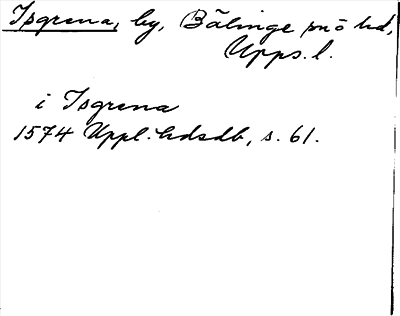 Isgrena, by, Bälinge snö hd,
Upps. l.
i Isgrena
1574 Uppl. hdsdb, s. 61.